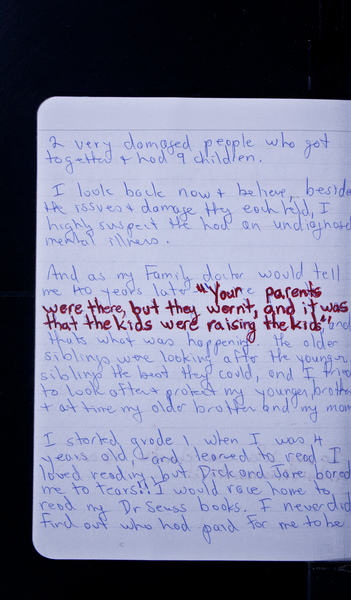 2 very damaged people who got
together & had 9 children.
I look back now & believe, beside
the issues & damage they each had, I
highly suspect the had an undiagnosed
mental illness.
And as my Family doctor would tell
me 40 years later "Your parents
were there, but they wernt, and it was
that the kids were raising the kids", and
thats what was happening. The older
siblings were looking after the younger
siblings the best they could, and I tried
to look after & protect my younger brother
& at time my older brother and my mom
I started grade 1, when I was 4
years old, and learned to read. I
loved reading but Dick and Jane bored
me to tears!! I would race home to
read my Dr Seuss books. I never did
find out who had paid for me to be